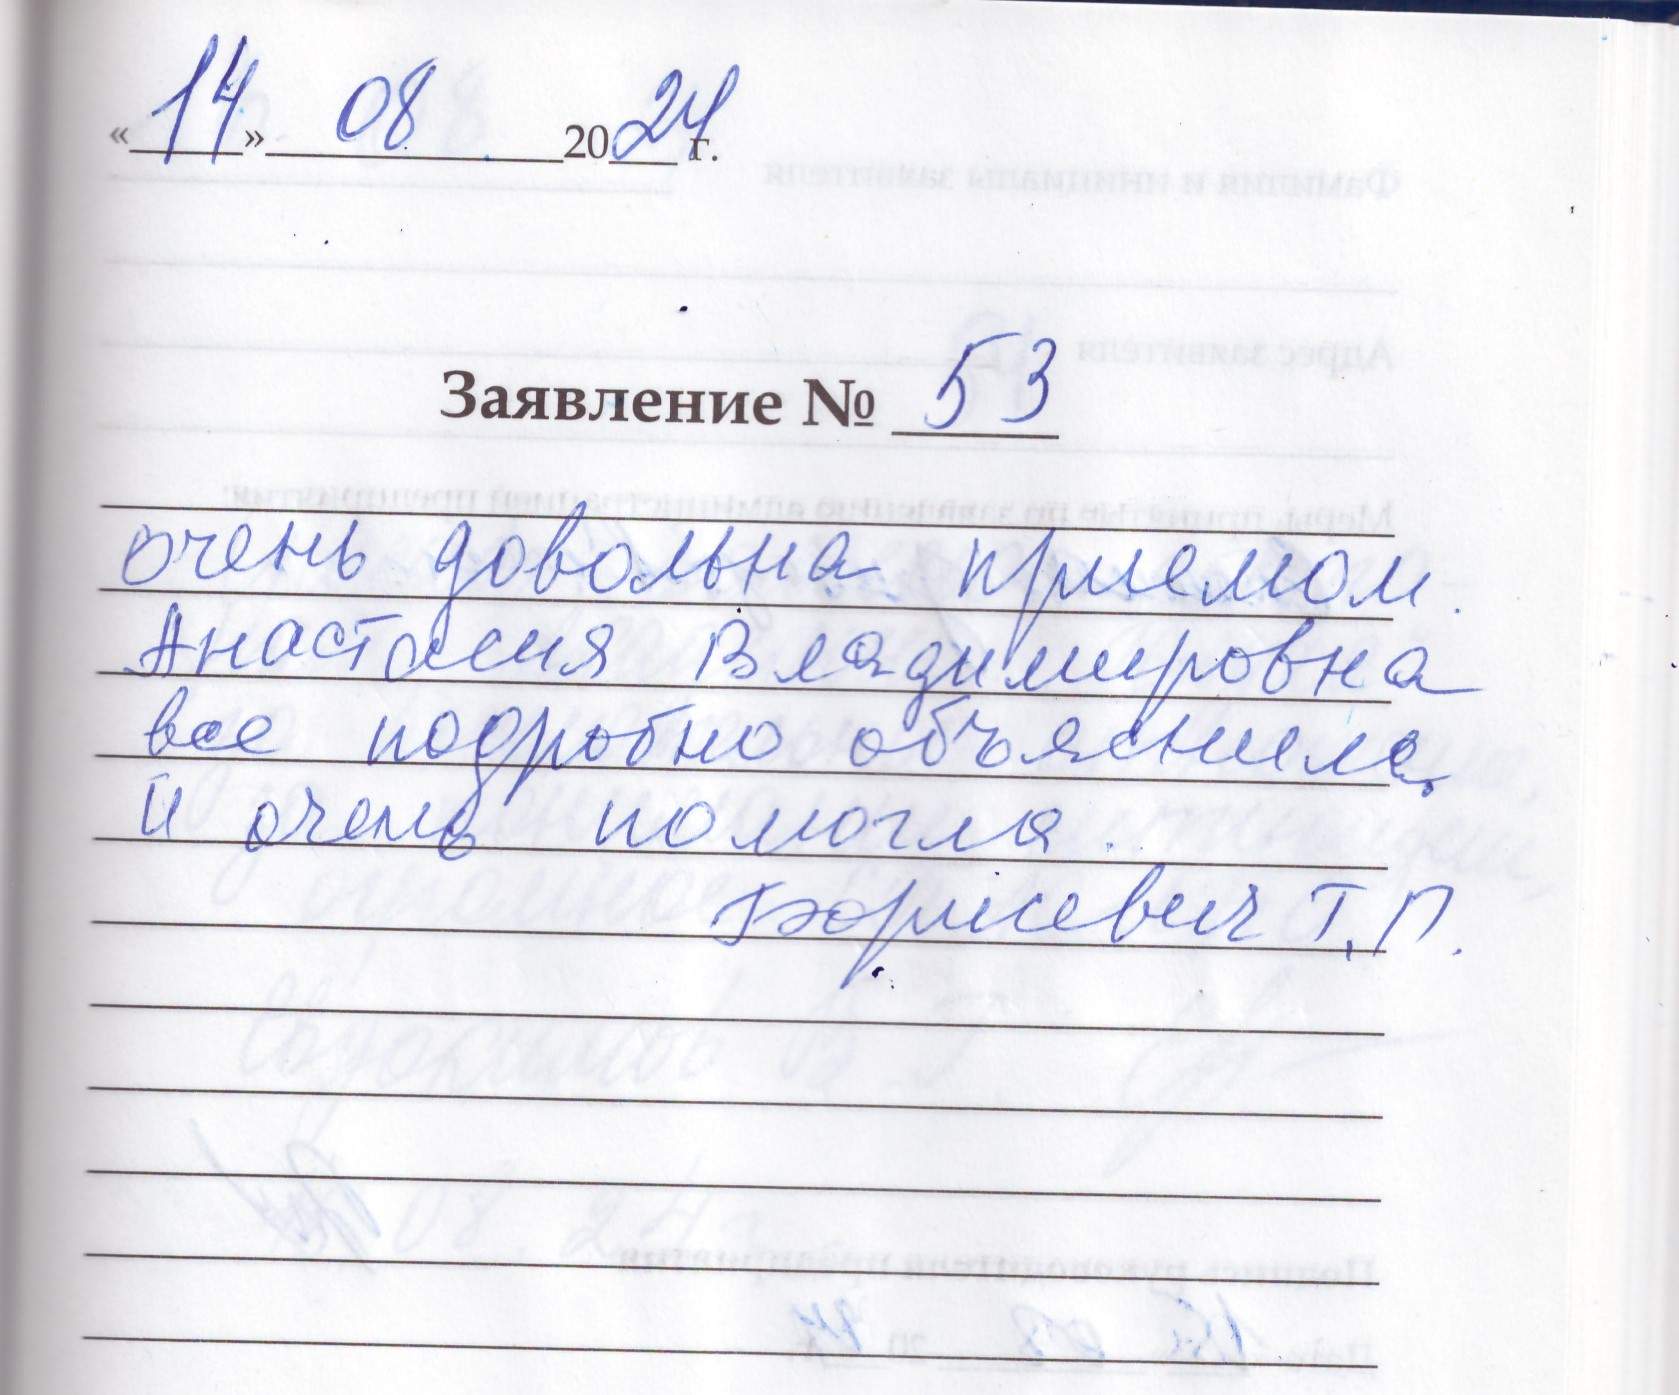 «14» 08 2024 г.
Заявление № 53
очень довольна приемом.
Анастасия Владимировна
все подробно объяснила,
и очень помогла.
Борисевич Т.П.